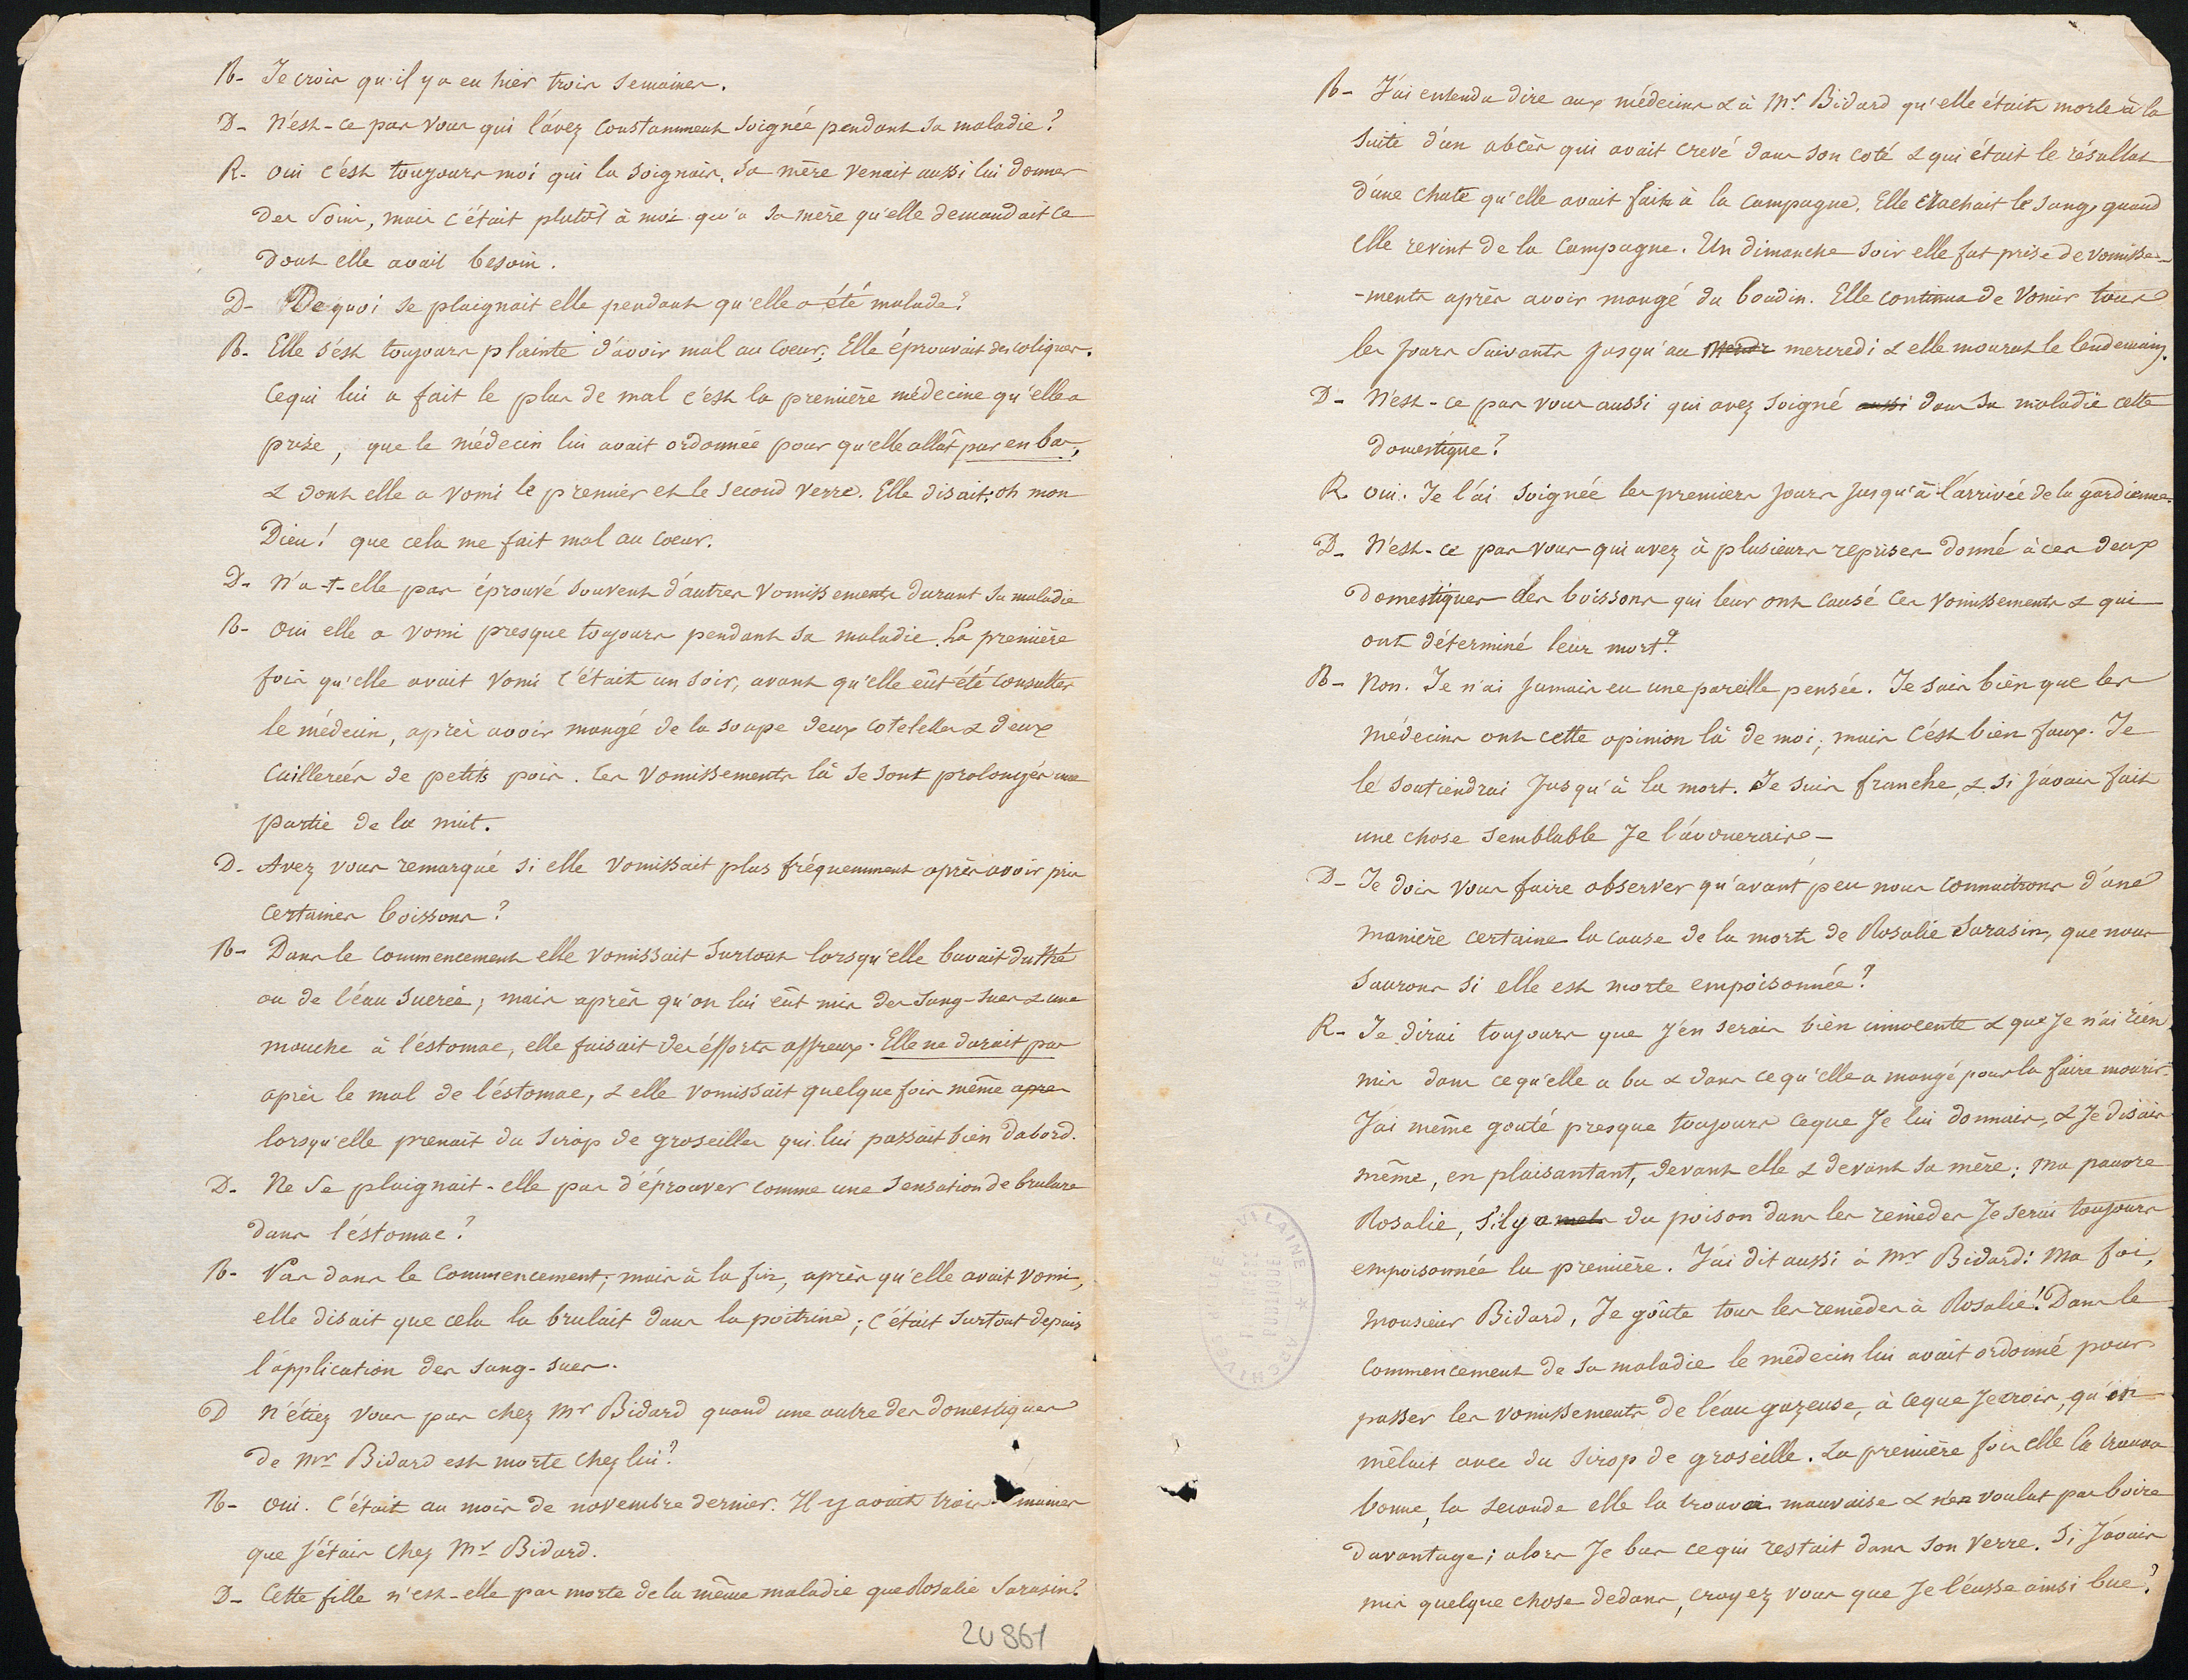 R- Je crois qu'il y a eu hier trois semaines.
D- N'est-ce pas vous qui l'avez constamment soignée pendant sa maladie?
R- oui c'est toujours moi qui la soignais. Sa mère venait aussi lui donner
des soins, mais c'était plutôt à moi qu'a sa mère qu'elle demandait ce
dont elle avait besoin.
D- De quoi se plaignait elle pendant qu'elle a été malade?
R- Elle s'est toujours plainte d'avoir mal au coeur; Elle éprouvait des coliques.
Ce qui lui a fait le plus de mal c'est la première médecine qu'elle a
prise, que le médecin lui avait ordonnée pour qu'elle allât par en bas,
& dont elle a vomi le premier et le second verre. Elle disait: oh mon
Dieu! que cela me fait mal au coeur.
D- N'a-t-elle pas éprouvé souvent d'autres vomissements durant sa maladie
R- Oui elle a vomi presque toujours pendant sa maladie. La première
fois qu'elle avait vomi c'était un soir, avant qu'elle eût été consulter
le médecin, après avoir mangé de la soupe deux cotelettes & deux
cuillereés de petits pois. Ces vomissements là se sont prolongés une
partie de la nuit.
D- Avez vous remarqué si elle vomissait plus fréquemment après avoir pris
certaines boissons?
R- Dans le commencement elle vomissait surtout lorsqu'elle buvait du thé
ou de l'eau sucreé; mais après qu'on lui eût mis des sang-sues & une
mouche à l'éstomac, elle faisait des éfforts affreux. Elle ne durait pas
après le mal de l'éstomac, & elle vomissait quelque fois même apres
lorsqu'elle prenait du sirop de groseilles qui lui passait bien dabord.
D- Ne se plaignait-elle pas d'éprouver comme une sensation de brulure
dans l'éstomac?
R- Pas dans le commencement; mais à la fin, après qu'elle avait vomi,
elle disait que cela la brulait dans la poitrine; c'était surtout depuis
l'application des sang-sues.
D n'étiez vous pas chez Mr Bidard quand une autre des domestiques
de Mr Bidard est morte chez lui?
R- oui. C'était au mois de novembre dernier. Il y avait trois maines
que j'étais chez Mr Bidard.
D- Cette fille n'est-elle pas morte de la même maladie que Rosalie Sarasin?
20861
R- J'ai entendu dire aux médecins & à Mr Bidard qu'elle était morte à la
suite d'un abcès qui avait crevé dans son coté & qui était le résultat
d'une chute qu'elle avait faite à la campagne. Elle crachait le sang quand
elle revint de la campagne. Un dimanche soir elle fut prise de vomisse-
-ments après avoir mangé du boudin. Elle continua de vomir tous
les jours suivants jusqu'au mercredi & elle mourut le lendemain.
D- N'est-ce pas vous aussi qui avez soigné aussi dans sa maladie cette
domestique?
R oui. Je l'ai soignée les premiers jours jusqu'à l'arrivée de la gardienne.
D- N'est-ce pas vous qui avez à plusieurs reprises donné à ces deux
domestiques des boissons qui leur ont causé ces vomissements & qui
ont déterminé leur mort?
R- Non. Je n'ai jamais eu une pareille pensée. Je sais bien que les
médecins ont cette opinion là de moi; mais c'est bien faux. Je
le soutiendrai jusqu'à la mort. Je suis franche, & si j'avais fait
une chose semblable je l'avouerais-
D- Je dois vous faire observer qu'avant peu nous connaitrons d'une
manière certaine la cause de la mort de Rosalie Sarasin, que nous
saurons si elle est morte empoisonnée?
R- Je dirai toujours que j'en serais bien innocente & que je n'ai rien
mis dans ce qu'elle a bu & dans ce qu'elle a mangé pour la faire mourir.
J'ai même gouté presque toujours ce que je lui donnais, & je disais
même, en plaisantant, devant elle & devant sa mère: ma pauvre
Rosalie, s'il y a mets du poison dans les remèdes je serai toujours
empoisonnée la première. J'ai dit aussi à Mr Bidard: Ma foi,
monsieur Bidard, Je goûte tous les remèdes à Rosalie! Dans le
commencement de sa maladie le médecin lui avait ordonné pour
passer les vomissements de l'eau gazeuse, à ce que je crois, qu'on
mêlait avec du sirop de groseille. La première fois elle la trouva
bonne, la seconde elle la trouva mauvaise & n'en voulut pas boire
davantage; alors je bus ce qui restait dans son verre. Si j'avais
mis quelque chose dedans, croyez vous que je l'eusse ainsi bue?